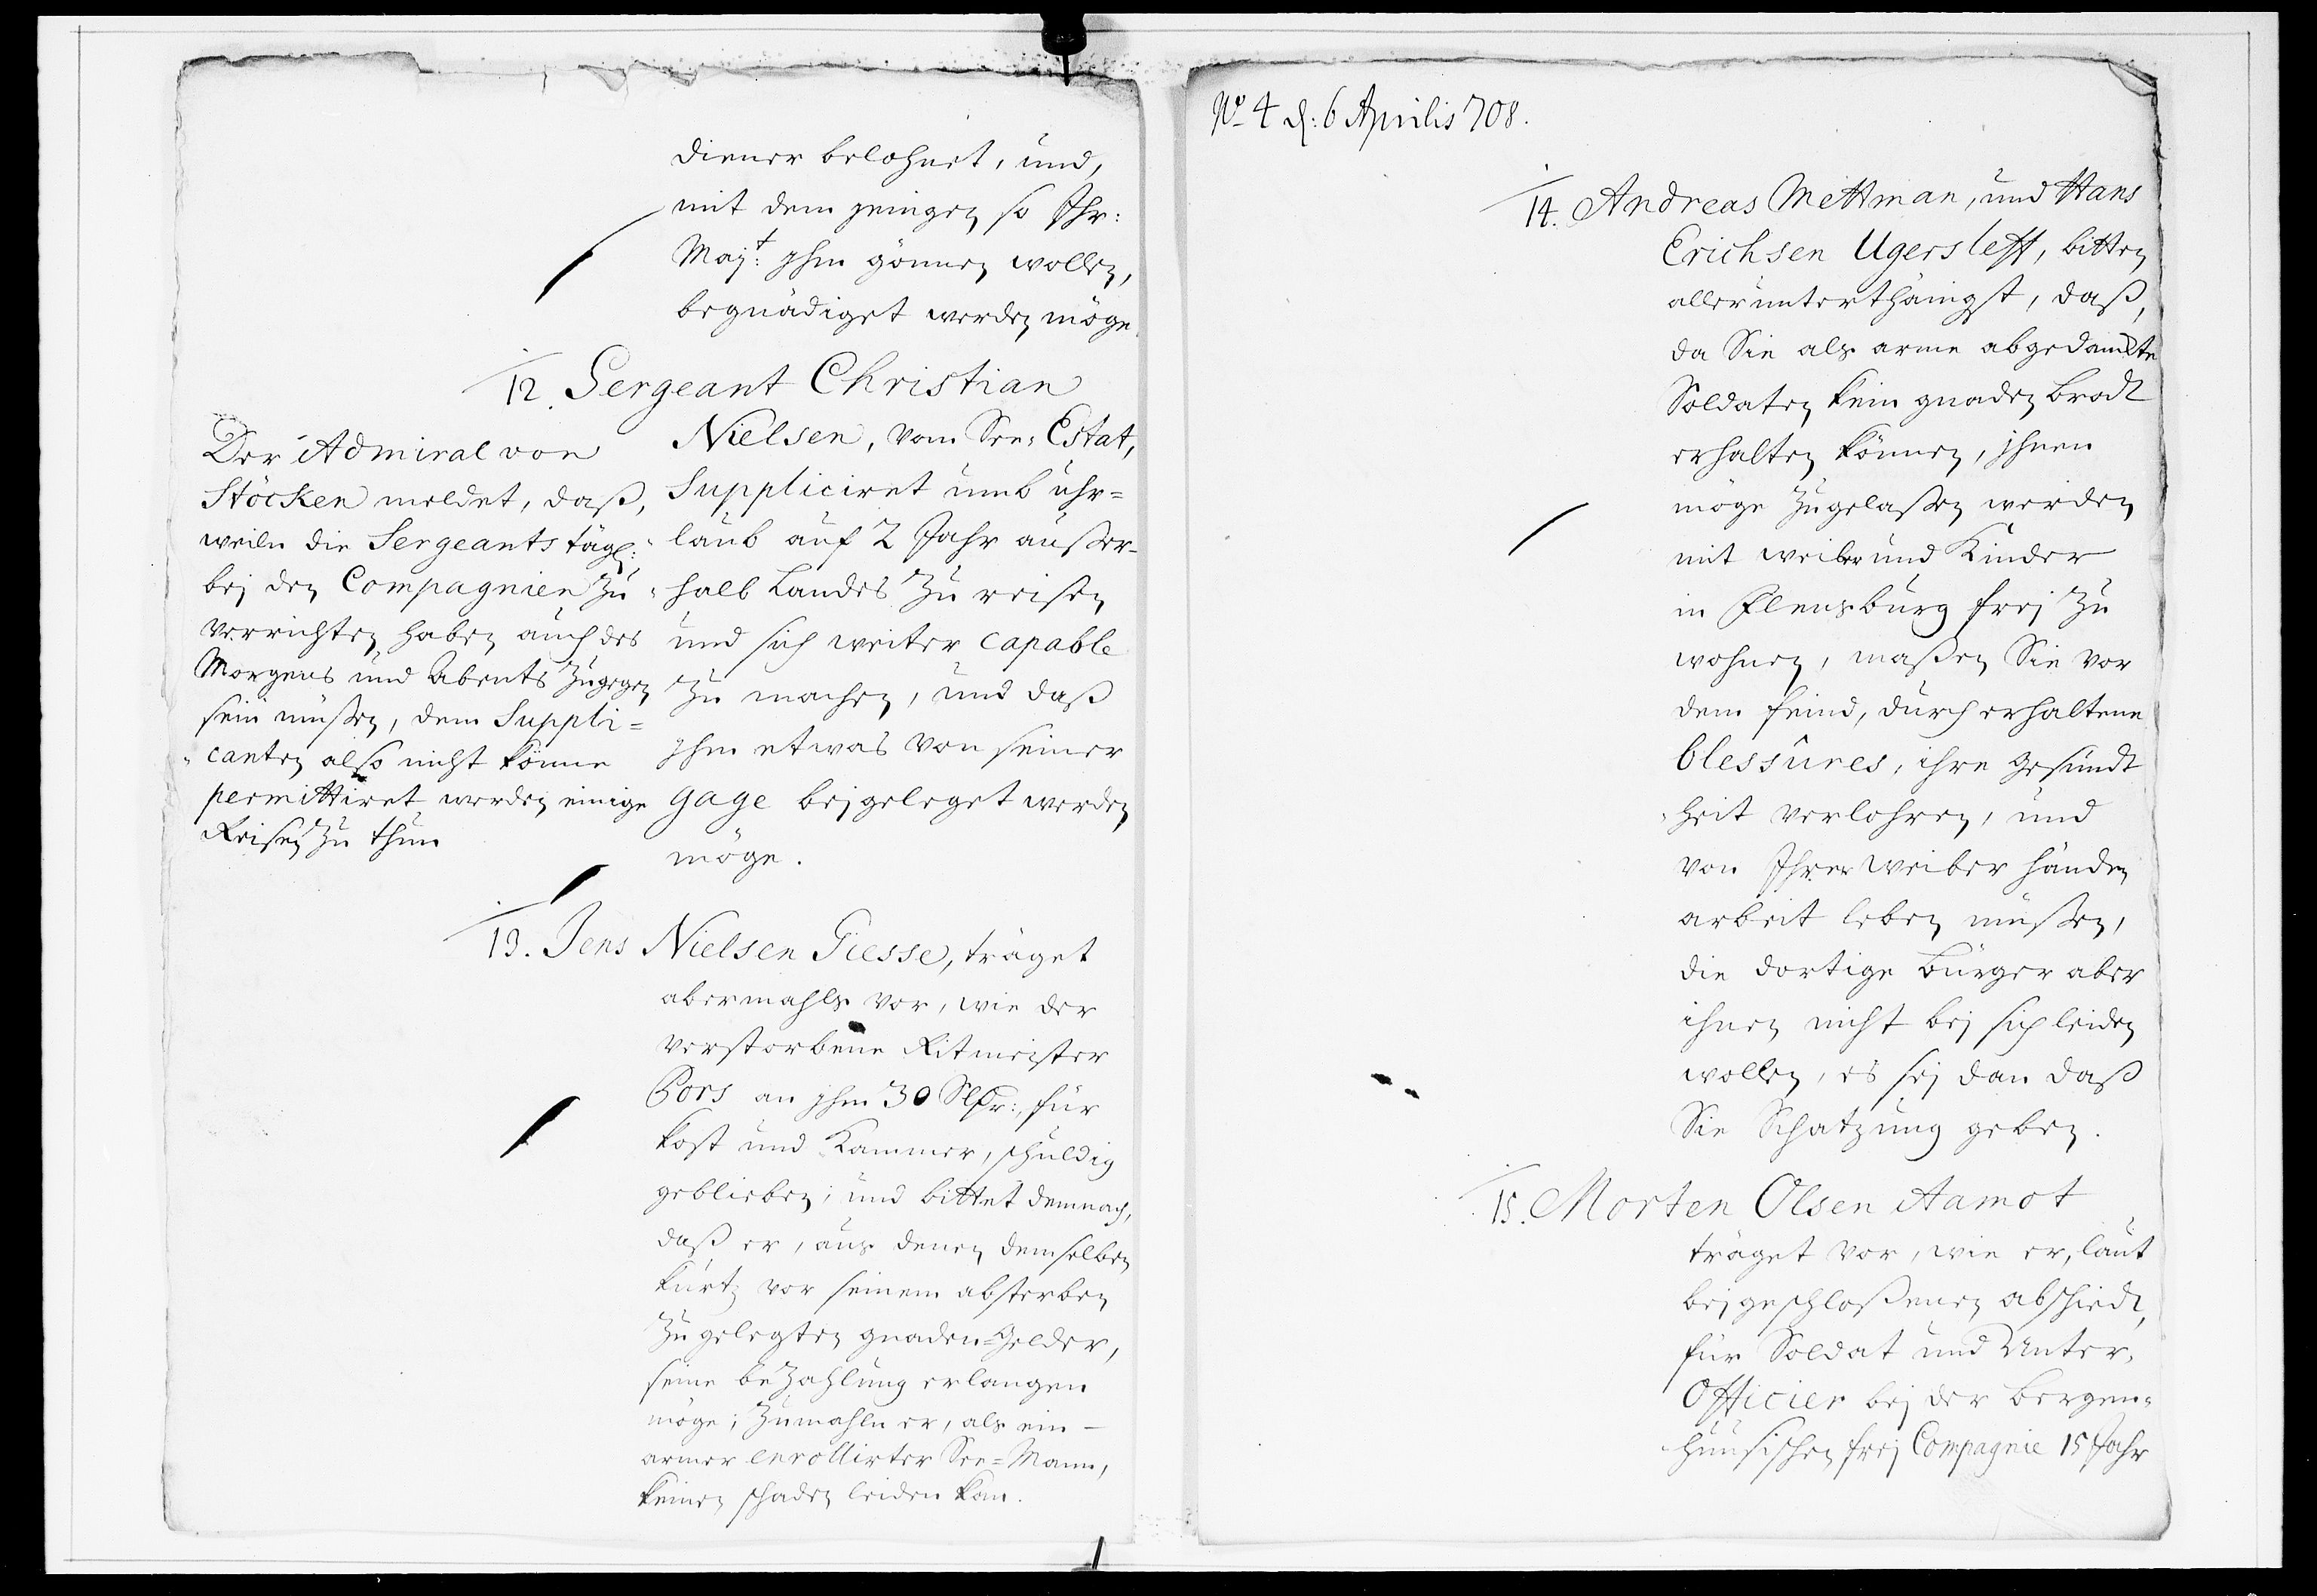 diener belohnet, und,
mit dem jenigen so Ihr:
Maj:t Ihm gönnen wollen,
begnädiget werden möge.
12. Sergeant Christian
Nielsen, vom See-Estat,
Suppliciret umb uhr=
laub auf 2 Jahr außer-
halb Landes zu reisen
und sich weiter capable
zu machen, und daß
Ihm etwas von seiner
gage beygeleget werden
möge.
Der Admiral von
Stöcken meldet, daß,
weiln die Sergeants tägl:
bej den Compagnien zu
verrichten haben auch des
Morgens und Abents zugegen
sein müßen, dem Suppli=
canten also nicht könne
permittiret werden einige
Reisen zu thun
13. Jens Nielsen Giesse, träget
abermahls vor, wie der
verstorbene Ritmeister
Bors an Ihm 30 Slhr:, für
kost und Kammer, schuldig
geblieben; und bittet demnach,
daß er, aus denen demselben
kurtz vor seinem absterben
zu gelegten gnaden=Gelder,
seine bezahlung erlangen
möge; zumahln er, als ein -
armer enrollirter See=Mann,
keinen schaden leiden kan.
No 4 d: 6 Aprilis 708.
14. Andreas Mettman, und Hans
Erichsen Ugersleff, bitten
allerunterthänigst, daß,
da Sie als arme abgedanckte
Soldaten kein gnaden brodt
erhalten können, ihnen
möge zugelaßen werden
mit weiber und Kinder
in Flensburg frej zu
wohnen, maßen Sie vor
dem feind, durch erhaltene
blessûres, ihre gesundt
heit verlohren, und
von Ihrer weiber händen
arbeit leben müßen,
die dortige bürger aber
ihnen nicht bej sich leiden
wollen, es sej dan daß
Sie Schatzung geben.
15. Morten Olsen Aamot
träget vor, wie er, laut
bejgeschloßenen abschiedt,
für Soldat und Unter-
Officier bej der bergen-
hunsischen frej Compagnie 15 Jahr